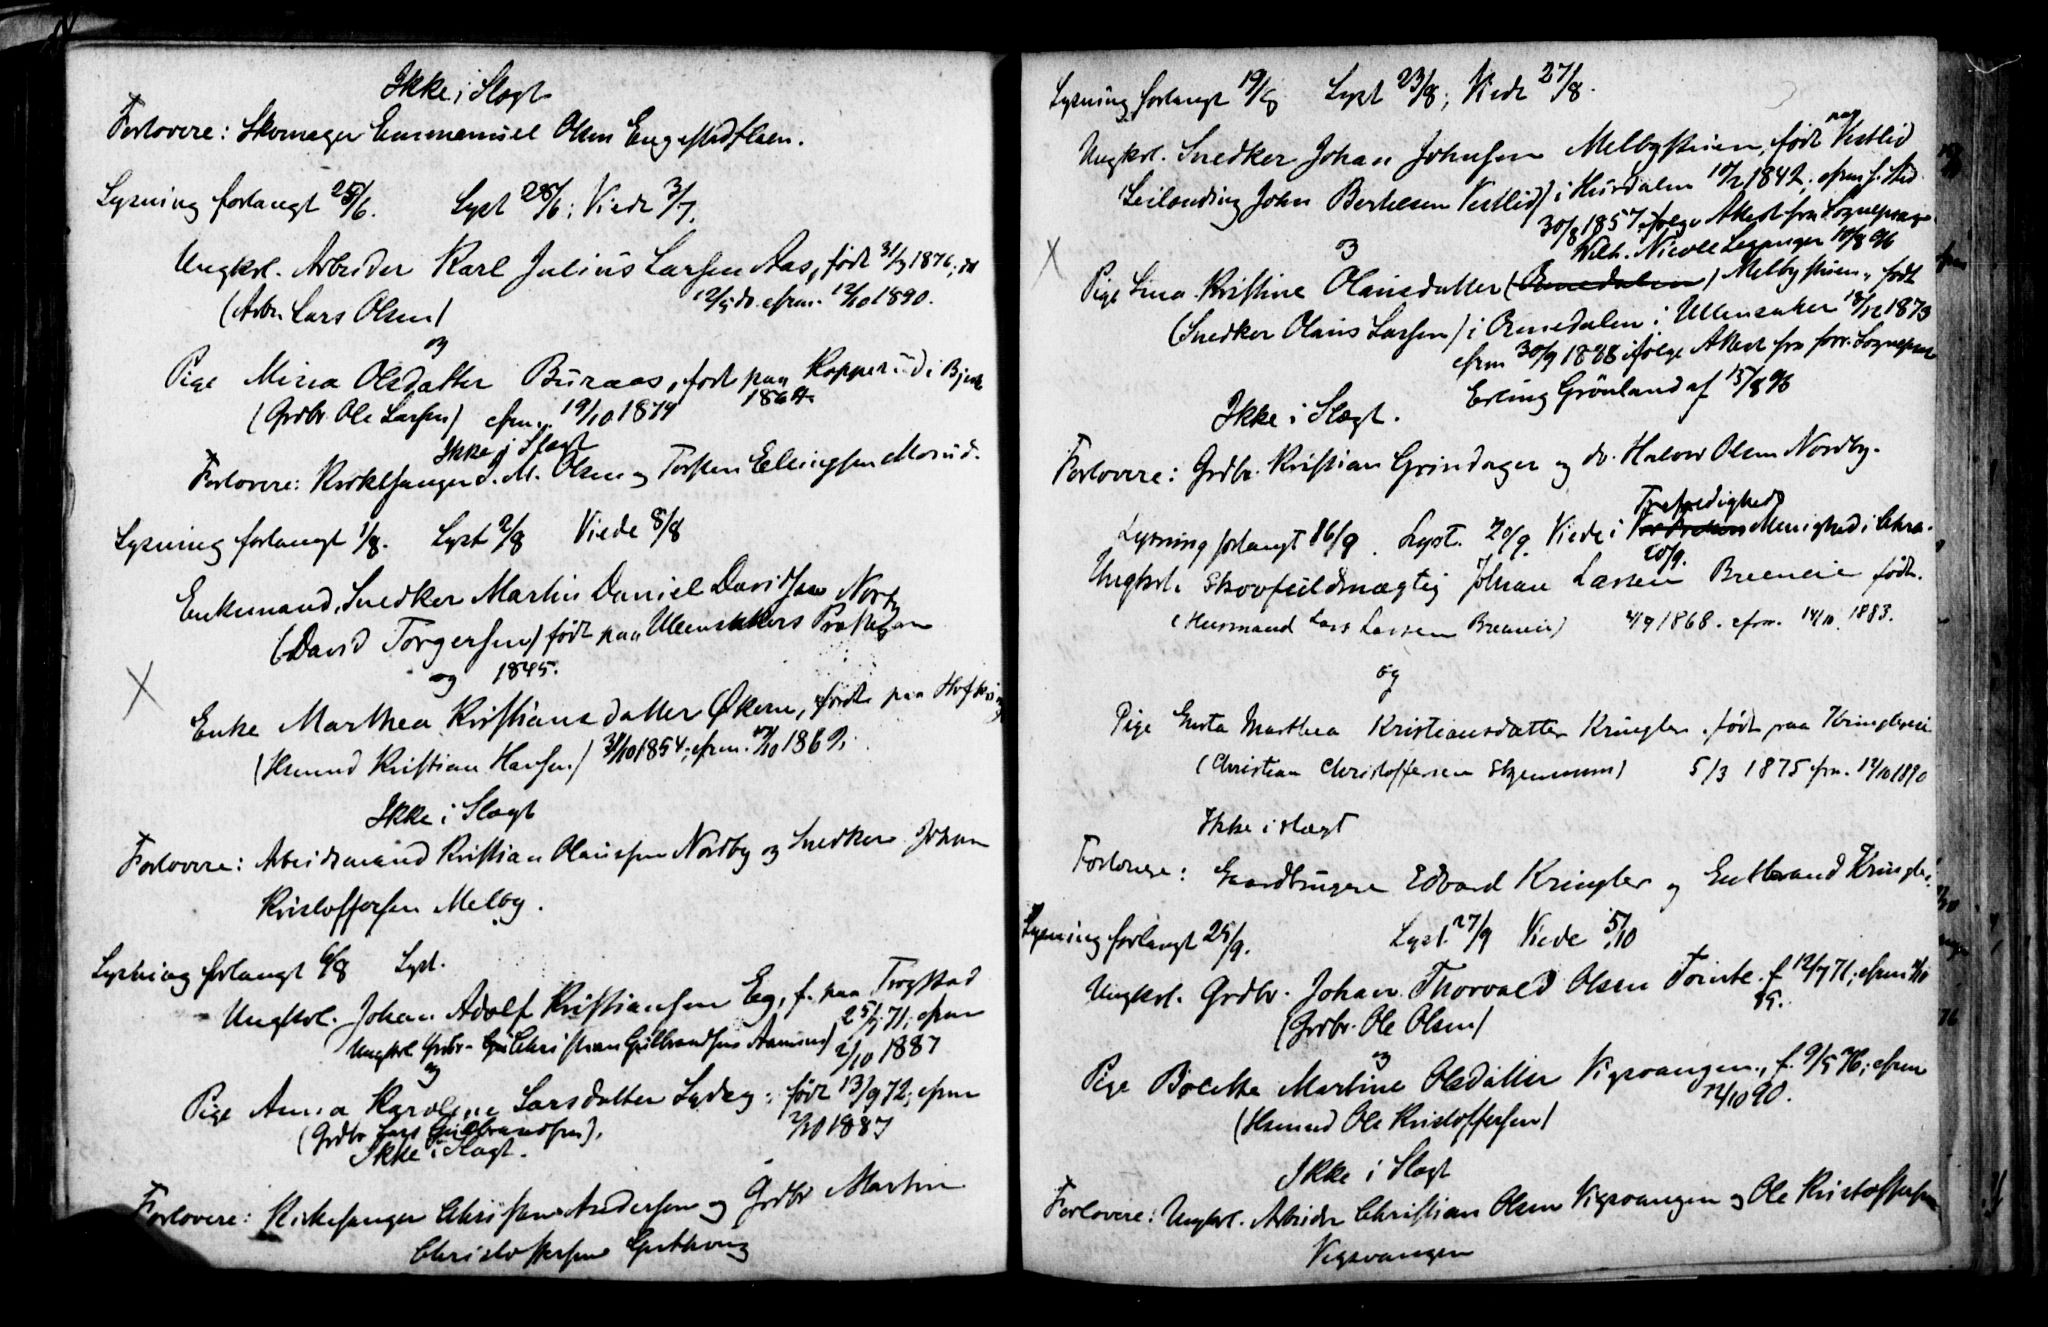 Ikke i Slægt
Forlovere: Skomager Emmanuel Olsen Engestadflaen.
Lysning forlangt 25/6. Lyst 28/6; Viede 3/7.
Ungkrl. Arbeider Karl Julius Larsen Aas, født 31/3 1876, dø
(Arbr. Lars Olsen) 12/5 do. cfrm. 12/10 1890.
og
Pige Mina Olsdatter Buraas, født paa Kopperud i Bjerke
(Grdbr Ole Larsen) cfrm. 19/10 1879 1864
Ikke i Slægt
Forlovere: Kirkesanger J. M. Olsen og Torsten Ellingsen Morud.
Lysning forlangt 1/8. Lyst 2/8 Viede 8/8
Enkemand, Snedker Martin Daniel Davidsen Norby
(David Torgersen) født paa Ullensakers Præstegaard
og 1845.
Enke Marthea Kristiansdatter Økern, født paa
(Hsmnd Kristian Hansen) 31/10 1854, cfrm. 10/10 1869.
Ikke i Slægt
Forlovere: Arbeidsmand Kristian Olaussen Nordby og Snedker Johan
Kristoffersen Melby.
Lysning forlangt 6/8 Lyst.
Ungkrl. Johan Adolf Kristiansen Eeg, f. paa Trogstad
Ungkrl Grdbr- Christian Gulbrandsen Aamund) 25/5 71; cfrm
og 2/10 1887
Pige Anna Karoline Larsdatter Lydey: født 13/9 72; cfrm
(Grdbr Lars Gulbrandsen). 2/10 1887
Ikke i Slægt.
Forlovere: Kirkesanger Christian Andersen og Grdbr Martin
Christoffersen
Lysning forlangt 19/8 Lyst 23/8; Viede 27/8.
Ungkrl. Snedker Johan Johnsen Melbystuen, født paa Vestlid
(Leilending John Berhesen Vestlid) i Hurdalen 10/2 1842, cfrm s. Sted
30/8 1857 ifølge Attest fra Sogneprest
og Wilh. Nicoll Leganger 10/8 96
Pige Lina Kristine Olausdatter (Ormedalen) Melbystuen, født
(Snedker Olaus Larsen) i Ormedalen i Ullensaker 18/12 1873
cfrm 30/9 1888 ifølge Attest fra forr. Sogneprest
Erling Grönland af 15/8 96
Ikke i Slægt.
Forlovere: Grdbr. Kristian Grindager og do. Halvor Olsen Nordby.
Trefoldigheds
Lysning forlangt 16/9. Lyst. 20/9. Viede i Menighed i Chra.
20/9.
Ungkrl. Skovfuldmægtig Johan Larsen Breeneie født.
(Husmand Lars Larsen Breeneie) 4/9 1868. cfrm. 14/10 1883.
og
Pige Gusta Marthea Kristiansdatter Kringler. født paa Kringlereie
(Christian Christoffersen) 5/3 1875 cfrm. 12/10 1890
Ikke i Slægt
Forlovere: Gaardbrugere Edvard Kringler og Gulbrand Kringler.
Lysning forlangt 25/9. Lyst 27/9 Viede 5/10
Ungkrl. Grdbr. Johan Thorvald Olsen Tømte. f. 12/7 71; cfrm 4/10
(Grdbr. Ole Olsen) 85.
og
Pige Bolette Martine Olsdatter Vigsvangen, f. 9/5 76; cfrm
(Hsmnd Ole Kristoffersen) 12/10 90.
Ikke i Slægt
Forlovere: Ungkrl. Arbeider Christian Olsen Vigsvangen og Ole Kristoffersen
Vigsvangen